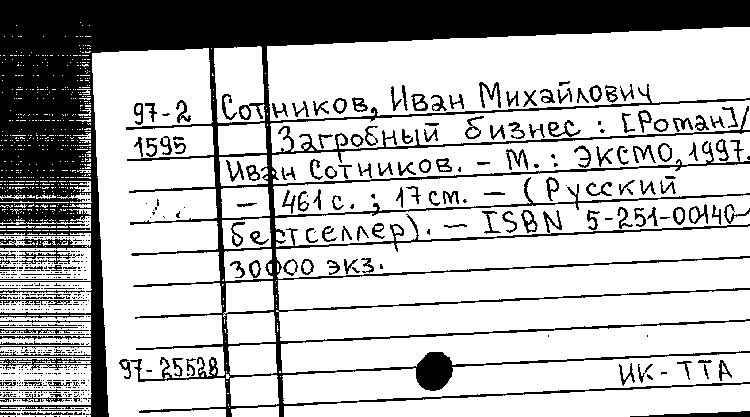 97-2 Сотников, Иван Михайлович
1595 Загробный бизнес : [Роман]/
Иван Сотников. - М. : ЭКСМО, 1997.
- 461 с. ; 17 см. - (Русский
бестселлер). - ISBN 5-251-00140-
30000 экз.
97-25528 ИК-ТТА